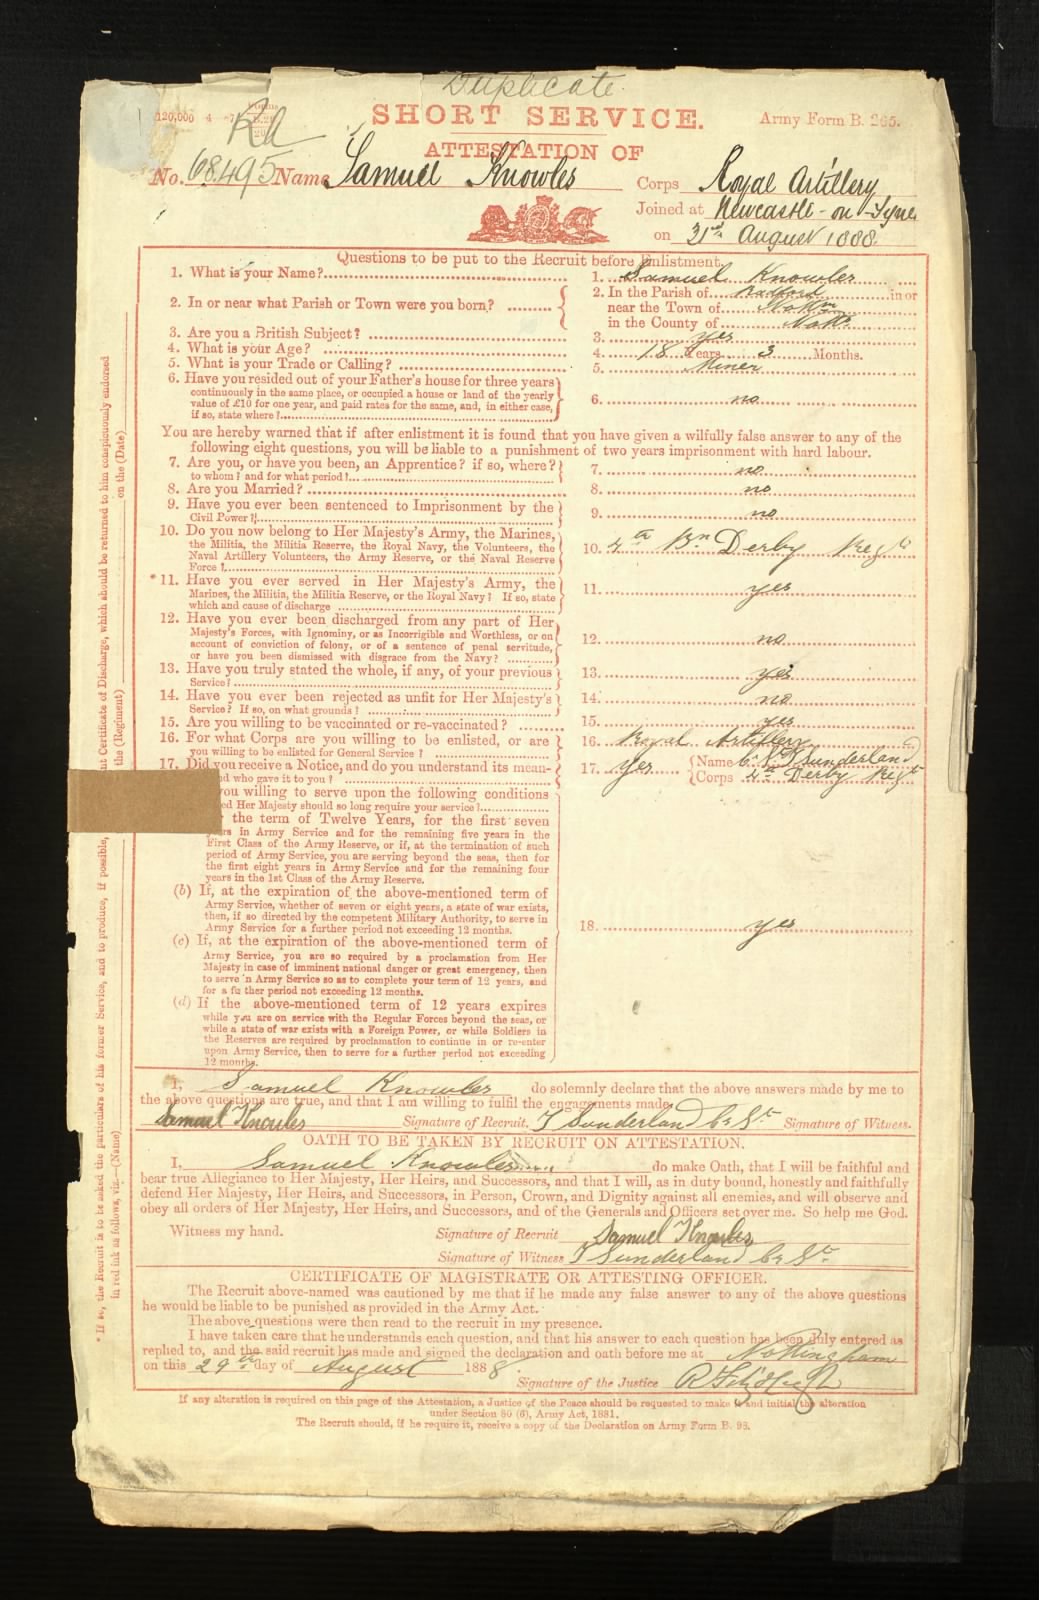 Duplicate.
120,000 4 87
Rd
SHORT SERVICE.
Army Form B. 265.
ATTESTATION OF
No. 68495 Name Samuel Knowles Corps Royal Artillery
Joined at Newcastle-on-Tyne
on 31st August 1888
Questions to be put to the Recruit before Enlistment.
1. What is your Name? 1. Samuel Knowles
2. In or near what Parish or Town were you born? 2. In the Parish of Radford in or
near the Town of Nottm
in the County of Notts
3. Are you a British Subject? 3. Yes
4. What is your Age? 4. 18 Years 3 Months.
5. What is your Trade or Calling? 5. Miner
6. Have you resided out of your Father's house for three years
continuously in the same place, or occupied a house or land of the yearly
value of £10 for one year, and paid rates for the same, and, in either case,
if so, state where? 6. no
You are hereby warned that if after enlistment it is found that you have given a wilfully false answer to any of the
following eight questions, you will be liable to a punishment of two years imprisonment with hard labour.
7. Are you, or have you been, an Apprentice? if so, where?
to whom? and for what period? 7. no
8. Are you Married? 8. no
9. Have you ever been sentenced to Imprisonment by the
Civil Power? 9. no
10. Do you now belong to Her Majesty's Army, the Marines,
the Militia, the Militia Reserve, the Royal Navy, the Volunteers, the
Naval Artillery Volunteers, the Army Reserve, or the Naval Reserve
Force? 10. 4th Bn Derby Regt
*11. Have you ever served in Her Majesty's Army, the
Marines, the Militia, the Militia Reserve, or the Royal Navy? If so, state
which and cause of discharge 11. yes
12. Have you ever been discharged from any part of Her
Majesty's Forces, with Ignominy, or as Incorrigible and Worthless, or on
account of conviction of felony, or of a sentence of penal servitude,
or have you been dismissed with disgrace from the Navy? 12. no
13. Have you truly stated the whole, if any, of your previous
Service? 13. yes
14. Have you ever been rejected as unfit for Her Majesty's
Service? If so, on what grounds? 14. no
15. Are you willing to be vaccinated or re-vaccinated? 15. yes
16. For what Corps are you willing to be enlisted, or are
you willing to be enlisted for General Service? 16. Royal Artillery
17. Did you receive a Notice, and do you understand its mean-
nd who gave it to you? 17. Yes Name Sunderland
Corps 4th Derby Regt
you willing to serve upon the following conditions
ed Her Majesty should so long require your service?
the term of Twelve Years, for the first seven
years in Army Service and for the remaining five years in the
First Class of the Army Reserve, or if, at the termination of such
period of Army Service, you are serving beyond the seas, then for
the first eight years in Army Service and for the remaining four
years in the 1st Class of the Army Reserve.
(b) If, at the expiration of the above-mentioned term of
Army Service, whether of seven or eight years, a state of war exists,
then, if so directed by the competent Military Authority, to serve in
Army Service for a further period not exceeding 12 months.
18. yes
(c) If, at the expiration of the above-mentioned term of
Army Service, you are so required by a proclamation from Her
Majesty in case of imminent national danger or great emergency, then
to serve in Army Service so as to complete your term of 12 years, and
for a further period not exceeding 12 months.
(d) If the above-mentioned term of 12 years expires
while you are on service with the Regular Forces beyond the seas, or
while a state of war exists with a Foreign Power, or while Soldiers in
the Reserves are required by proclamation to continue in or re-enter
upon Army Service, then to serve for a further period not exceeding
12 months.
I, Samuel Knowles do solemnly declare that the above answers made by me to
the above questions are true, and that I am willing to fulfil the engagements made.
Samuel Knowles Signature of Recruit. T Sunderland Cr St Signature of Witness.
OATH TO BE TAKEN BY RECRUIT ON ATTESTATION.
I, Samuel Knowles do make Oath, that I will be faithful and
bear true Allegiance to Her Majesty, Her Heirs, and Successors, and that I will, as in duty bound, honestly and faithfully
defend Her Majesty, Her Heirs, and Successors, in Person, Crown, and Dignity against all enemies, and will observe and
obey all orders of Her Majesty, Her Heirs, and Successors, and of the Generals and Officers set over me. So help me God.
Witness my hand. Signature of Recruit Samuel Knowles
Signature of Witness T Sunderland Cr St
CERTIFICATE OF MAGISTRATE OR ATTESTING OFFICER.
The Recruit above-named was cautioned by me that if he made any false answer to any of the above questions
he would be liable to be punished as provided in the Army Act.
The above questions were then read to the recruit in my presence.
I have taken care that he understands each question, and that his answer to each question has been duly entered as
replied to, and the said recruit has made and signed the declaration and oath before me at Nottingham
on this 29th day of August 1888
Signature of the Justice
If any alteration is required on this page of the Attestation, a Justice of the Peace should be requested to make it and initial the alteration
under Section 80 (6), Army Act, 1881.
The Recruit should, if he require it, receive a copy of the Declaration on Army Form B. 98.
* If so, the Recruit is to be asked the particulars of his former Service, and to produce, if possible, nt Certificate of Discharge, which should be returned to him conspicuously endorsed
in red ink as follows, viz.—(Name) the (Regiment) on the (Date)